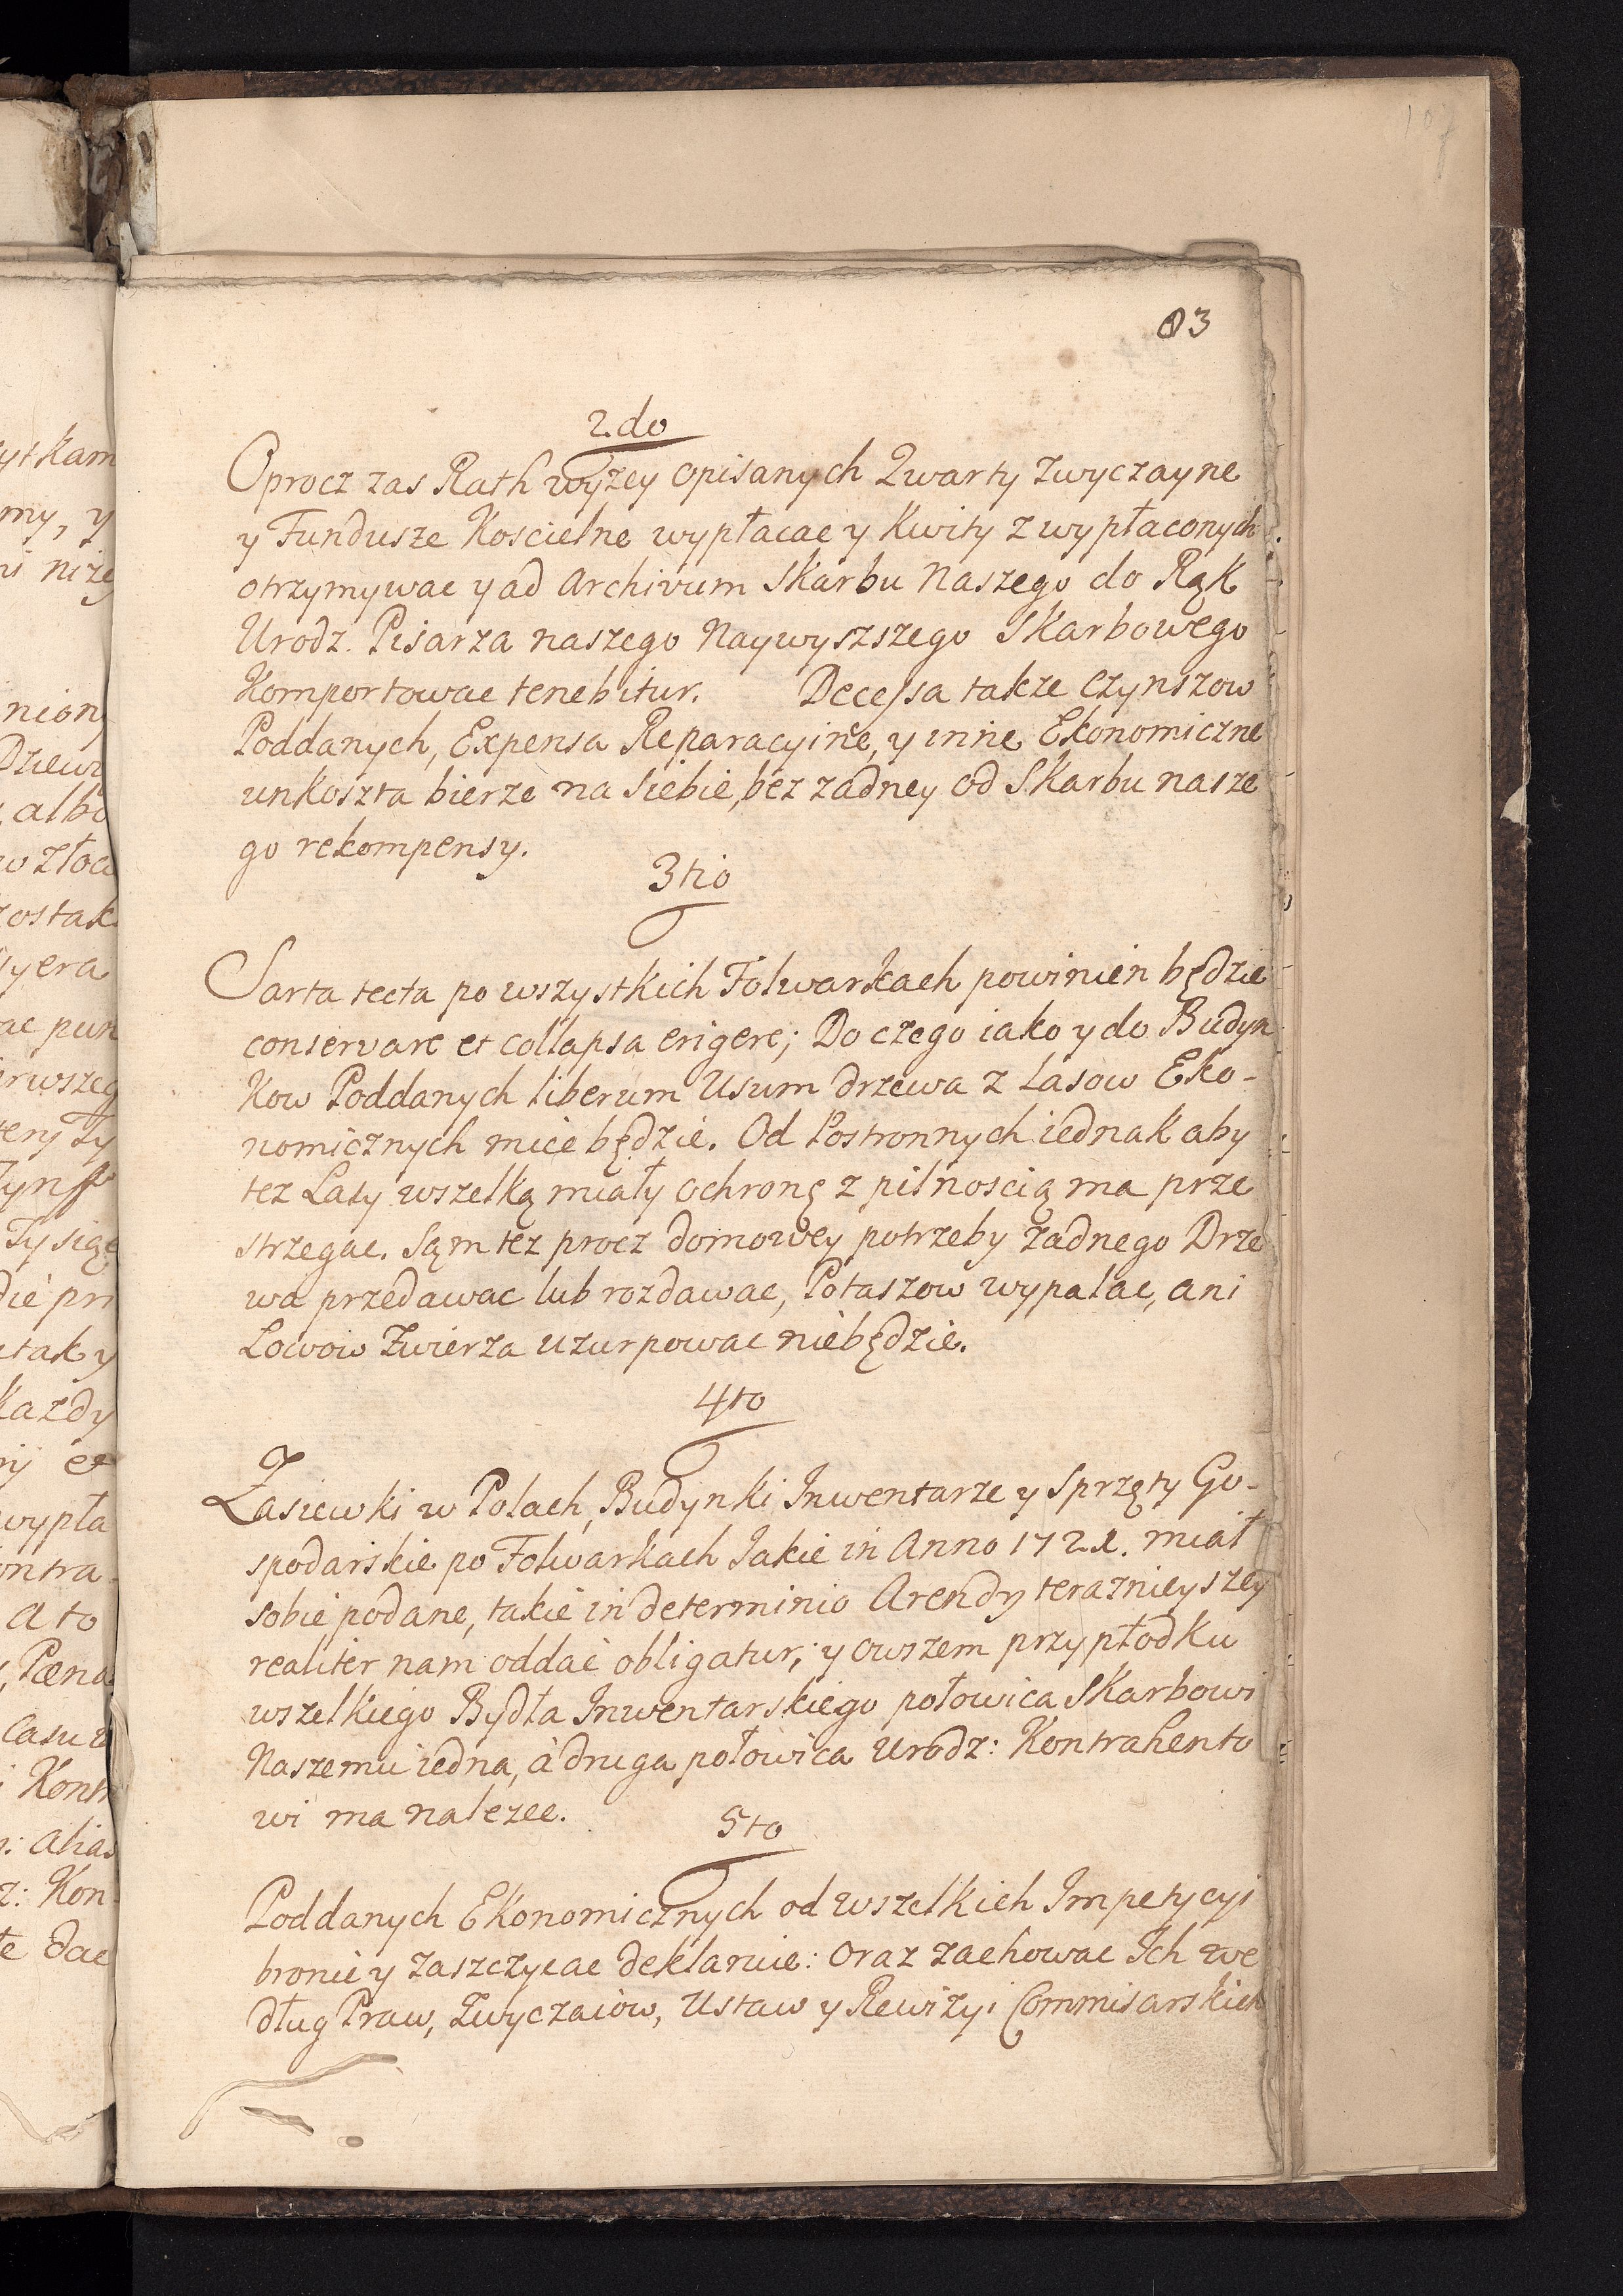 83
2.do
Oprocz zas Rath wyzey opisanych Qwarty zwyczayne
y Fundusze Koscielne wypłacac y Kwity z wypłaconych
otrzymywac y ad Archivum Skarbu Naszego do Rąk
Urodz. Pisarza naszego Naywyszszego Skarbowego
Komportowac tenebitur. Decessa takze czynszow
Poddanych, Expensa Reparacyine, y inne Ekonomiczne
unkoszta bierze na siebie, bez zadney od Skarbu nasze
go rekompensy.
3tio
Sarta tecta po wszystkich Folwarkach powinien będzie
conservare et collapsa erigere; Do czego iako y do Budyn
Kow Poddanych liberum Usum drzewa z Lasow Eko-
nomicznych miec będzie. Od Postronnych iednak aby
tez Lasy wszelką miały ochronę z pilnoscią ma prze
strzegac. Sąm tez procz domowey potrzeby zadnego Drze
wa przedawac lub rozdawac, Potaszow wypalac, ani
Lowow Zwierza uzurpowac niebędzie.
4to
Zasiewki w Polach, Budynki Inwentarze y Sprzęty Go-
spodarskie po Folwarkach Jakie in Anno miał
sobie podane, takie in determinio Arendy teraznieyszey
realiter nam oddać obligatur; y owszem przypłodku
wszelkiego Bydła Inwentarskiego połowica Skarbowi
Naszemu iedna, à druga połowica Urodz: Kontrahento
wi ma nalezec.
5to
Poddanych Ekonomicznych od wszelkich Impetycyi
bronić y zaszczycac deklaruie: oraz zachowac Ich we
dług Praw, Zwyczaiow, Ustaw y Rewizyi Commisarskich